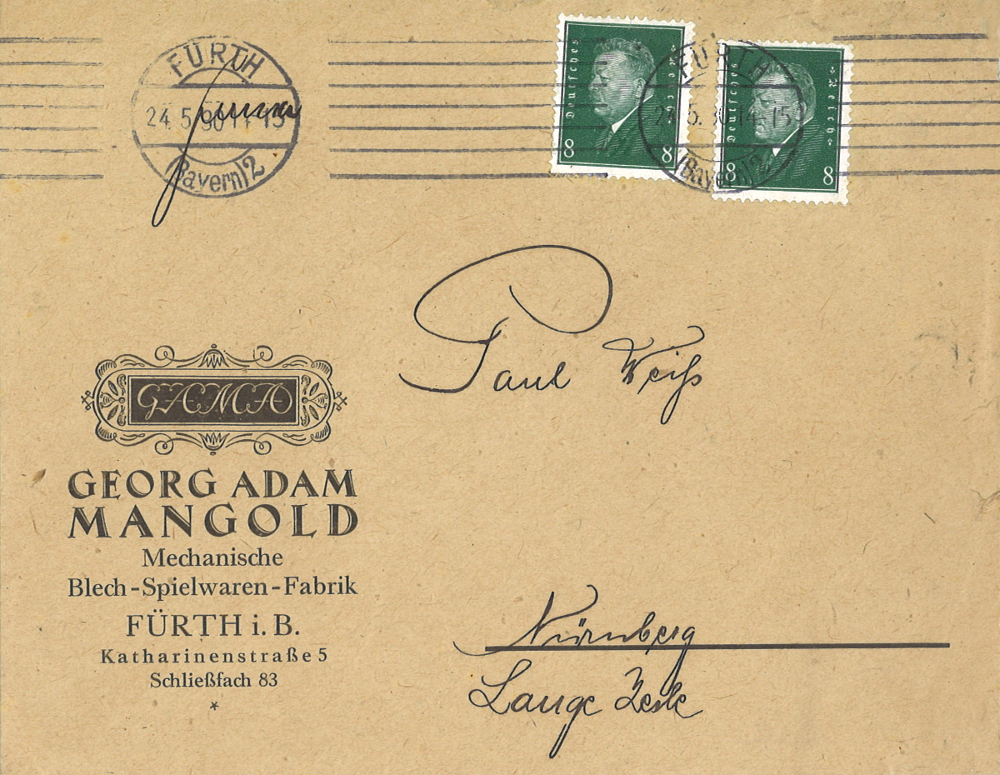 FÜRTH
24.5.30 14-15
(Bayern) 2
Deutsches Reich
8 8
FÜRTH
24.5.30 14-15
(Bayern)
Deutsches Reich
8 8
Paul Weiß
GAMA
GEORG ADAM
MANGOLD
Mechanische
Blech-Spielwaren-Fabrik
FÜRTH i. B.
Katharinenstraße 5
Schließfach 83
*
Nürnberg
Lange Zeile